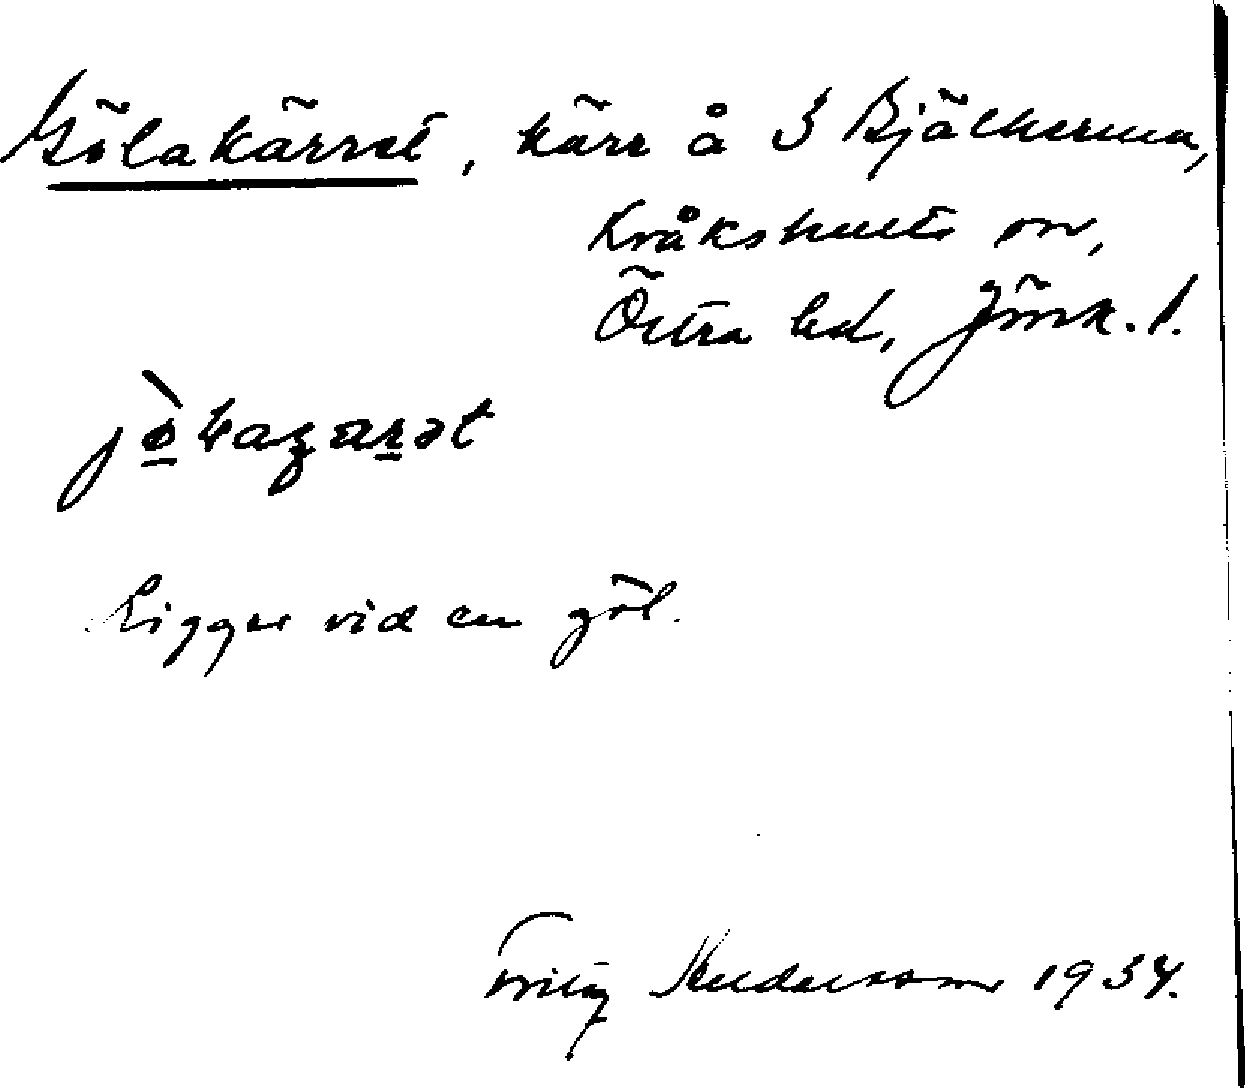 Gölakärret, kärr å S Bjälkerum,
Kråkshults sn,
Östra hd, Jönk. l.
Ligger vid en göl.
Fritz Andersson 1934.